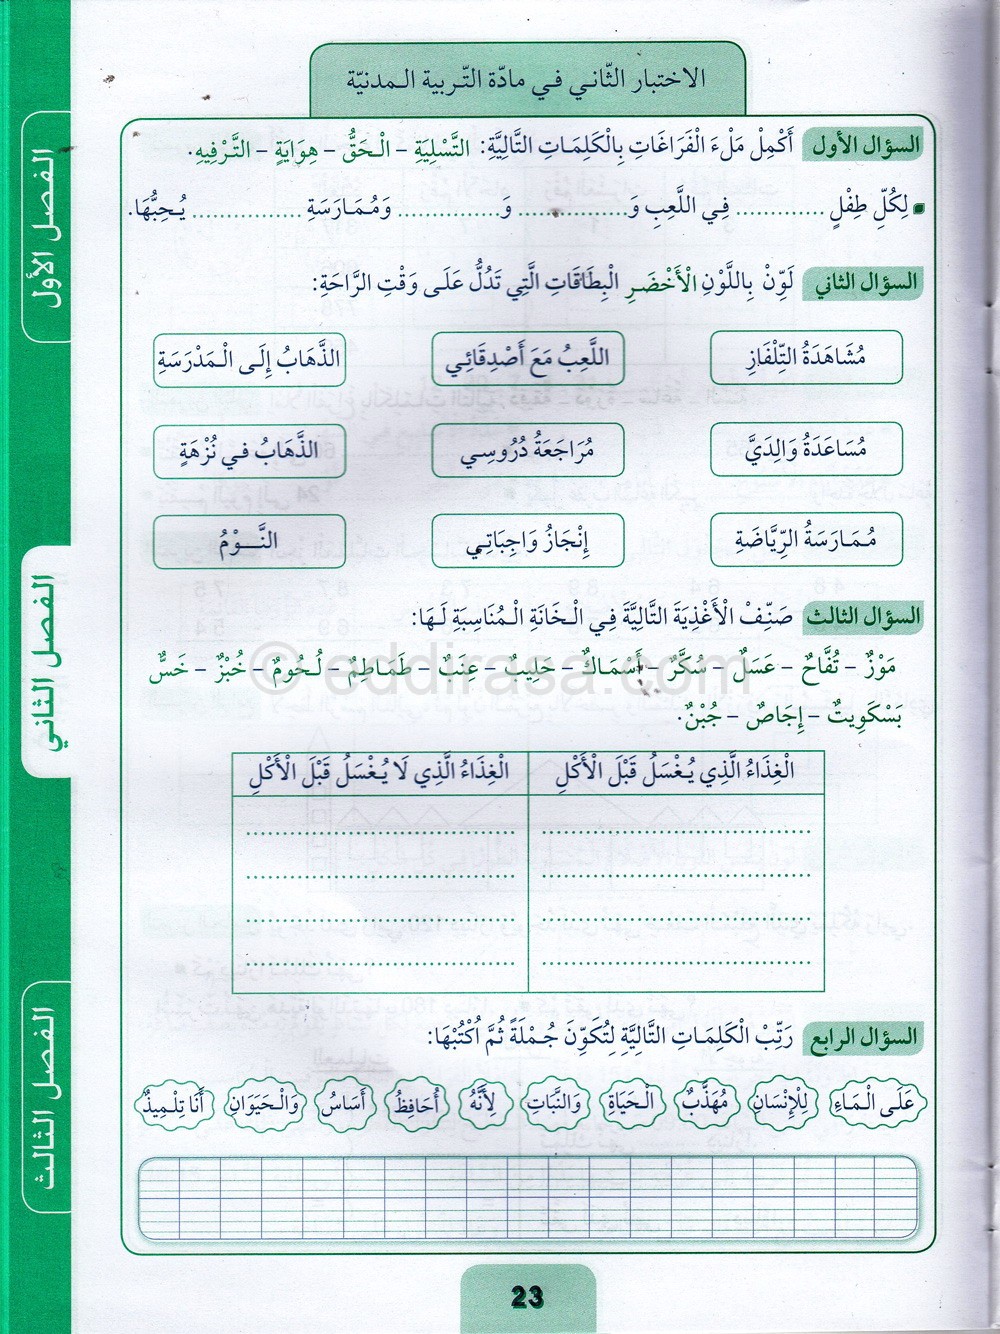 الاختبار الثّاني في مادّة التّربية المدنيّة
السؤال الأول أَكْمِلْ مَلْءَ الْفَرَاغَاتِ بِالْكَلِمَاتِ التَّالِيَّةِ: التَّسْلِيَةِ - الْحَقُّ - هِوَايَةٍ - التَّرْفِيهِ.
لِكُلِّ طِفْلٍ ............ فِي اللَّعِبِ وَ............... وَ............... وَمُمَارَسَةِ ............... يُحِبُّهَا.
السؤال الثاني لَوِّنْ بِاللَّوْنِ الْأَخْضَرِ الْبِطَاقَاتِ الَّتِي تَدُلُّ عَلَى وَقْتِ الرَّاحَةِ:
مُشَاهَدَةُ التِّلْفَازِ اللَّعِبُ مَعَ أَصْدِقَائِي الذَّهَابُ إِلَى الْمَدْرَسَةِ
مُسَاعَدَةُ وَالِدَيَّ مُرَاجَعَةُ دُرُوسِي الذَّهَابُ في نُزْهَةٍ
مُمَارَسَةُ الرِّيَّاضَةِ إِنْجَازُ وَاجِبَاتِي النَّـــوْمُ
السؤال الثالث صَنِّفْ الْأَغْذِيَةَ التَّالِيَّةَ فِي الْخَانَةِ الْمُنَاسِبَةِ لَهَا:
مَوْزٌ - تُفَّاحٌ - عَسَلٌ - سُكَّرٌ - أَسْمَاكٌ - حَلِيبٌ - عِنَبٌ - طَمَاطِمٌ - لُحُومٌ - خُبْزٌ - خَسٌّ
بَسْكَوِيتٌ - إِجَاصٌ - جُبْنٌ.
© eddirasa.com
الْغِذَاءُ الَّذِي يُغْسَلُ قَبْلَ الْأَكْلِ الْغِذَاءُ الَّذِي لَا يُغْسَلُ قَبْلَ الْأَكْلِ
السؤال الرابع رَتِّبْ الْكَلِمَاتِ التَّالِيَّةِ لِتُكَوِّنَ جُمْلَةً ثُمَّ اُكْتُبْهَا:
عَلَى الْمَاءِ لِلْإِنْسَانِ مُهَذَّبٌ الْحَيَاةِ وَالنَّبَاتِ لِأَنَّهُ أُحَافِظُ أَسَاسُ وَالْحَيَوَانِ أَنَا تِلْمِيذٌ
الفصل الأول
الفصل الثاني
الفصل الثالث
23